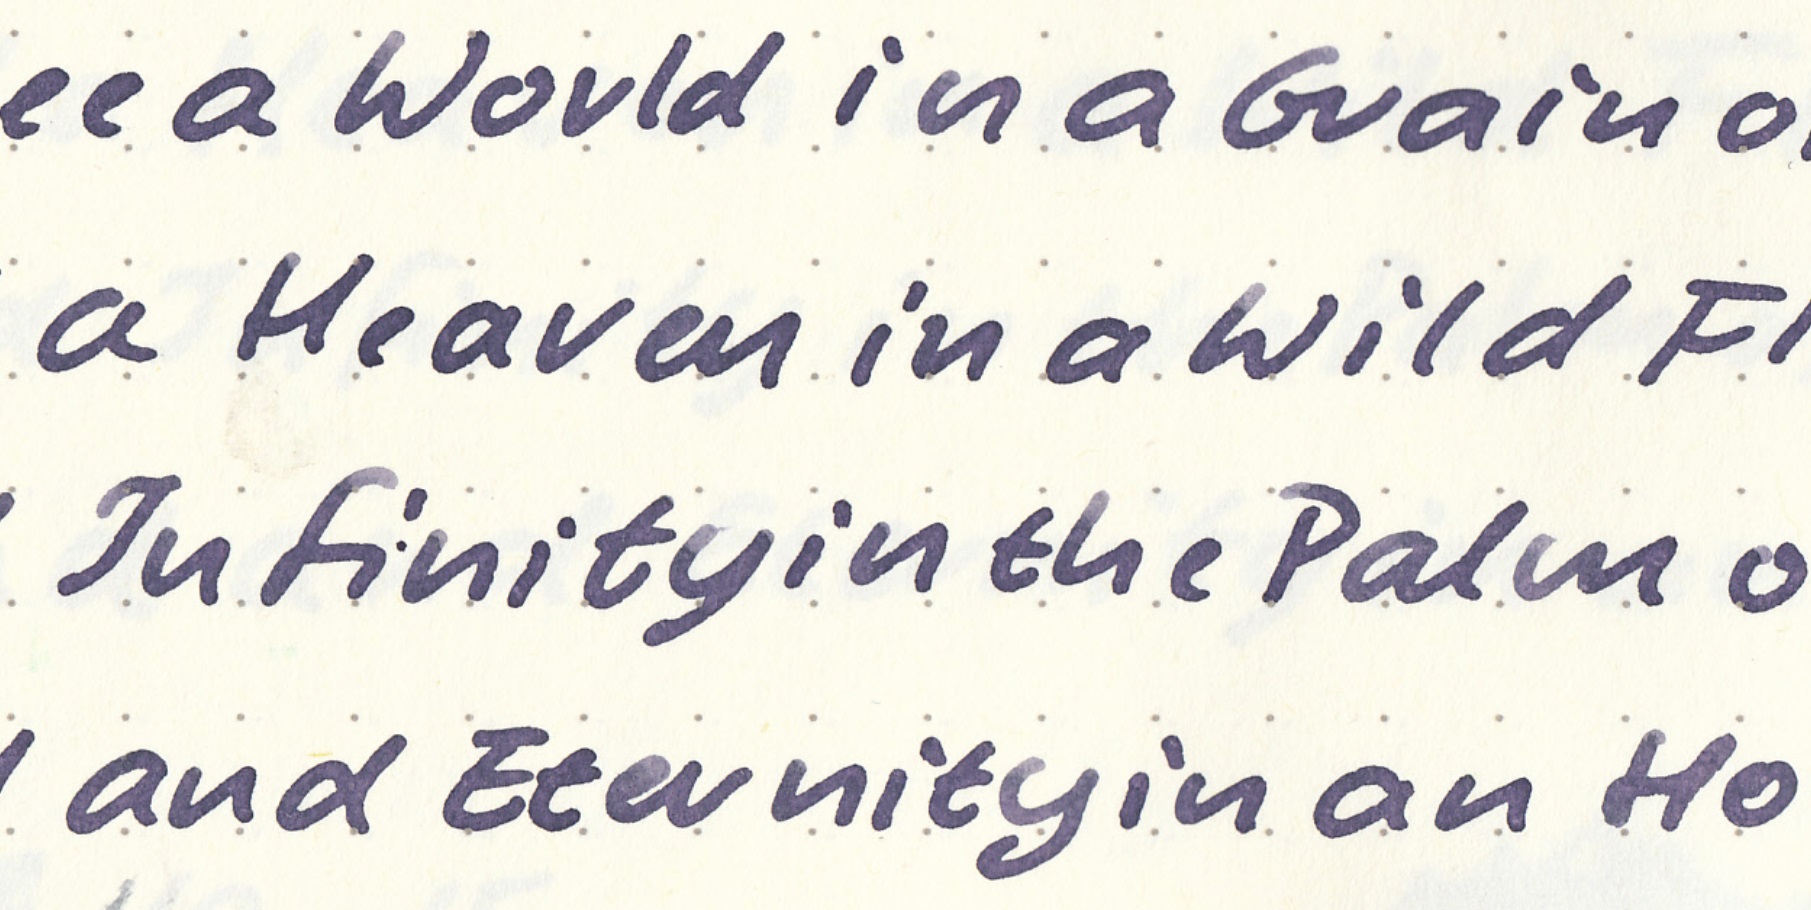 ee a World in a Grain o
a Heaven in a Wild Fl
Infinity in the Palm o
and Eternity in an Ho